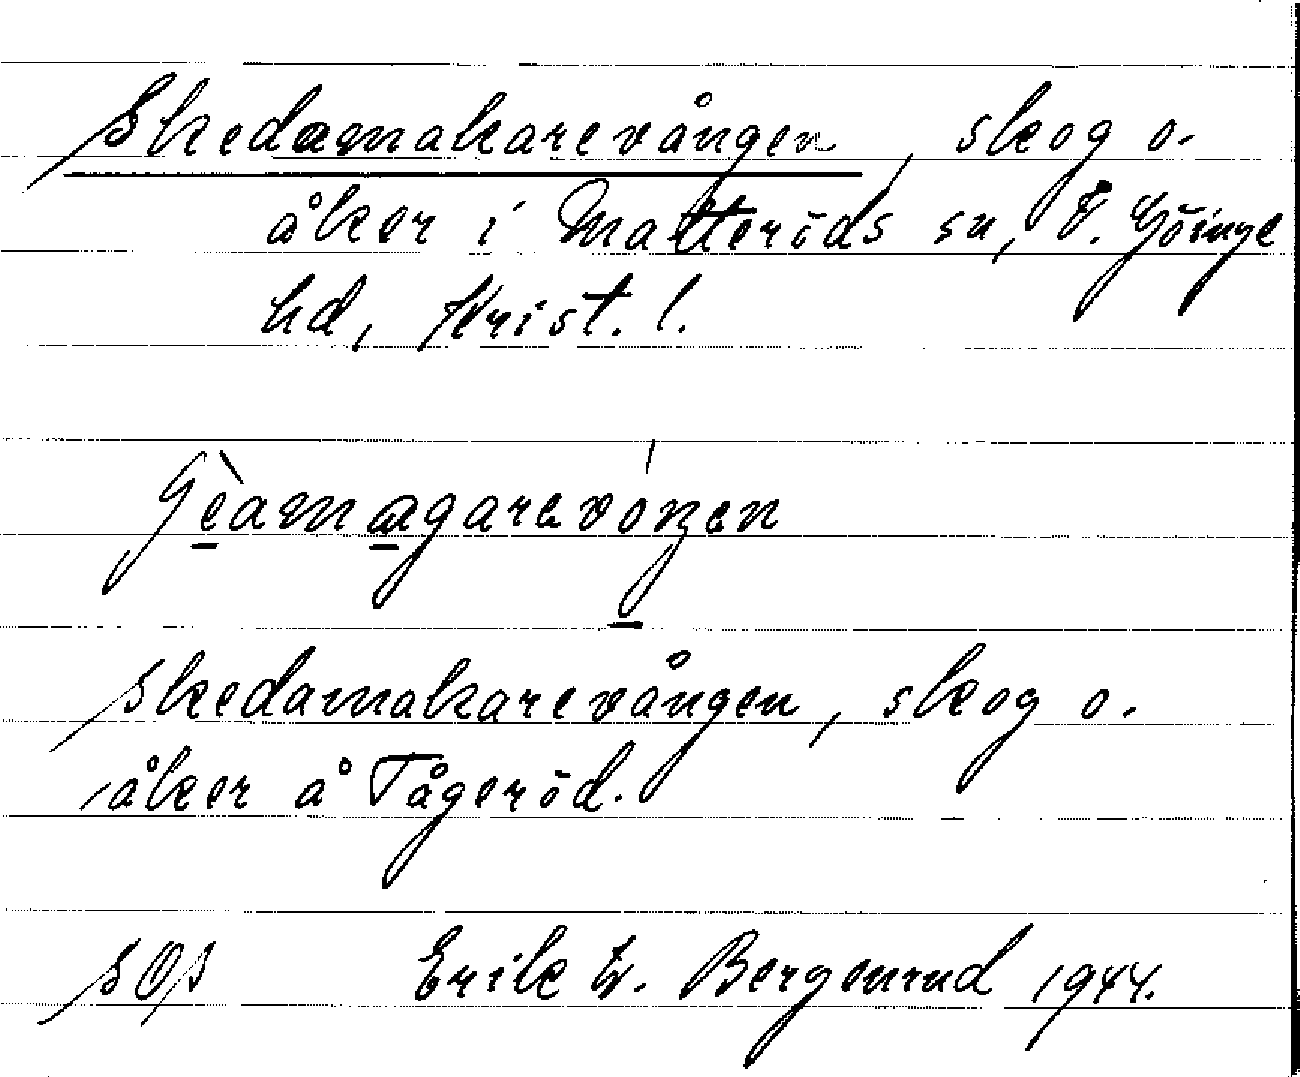 Skedamakarevången, skog o.
åker i Matteröds sn, V. Göinge
hd, Krist. l.
skedamakarevången, skog o.
åker å Tågeröd.
SOS Erik W. Bergenrud 1944.